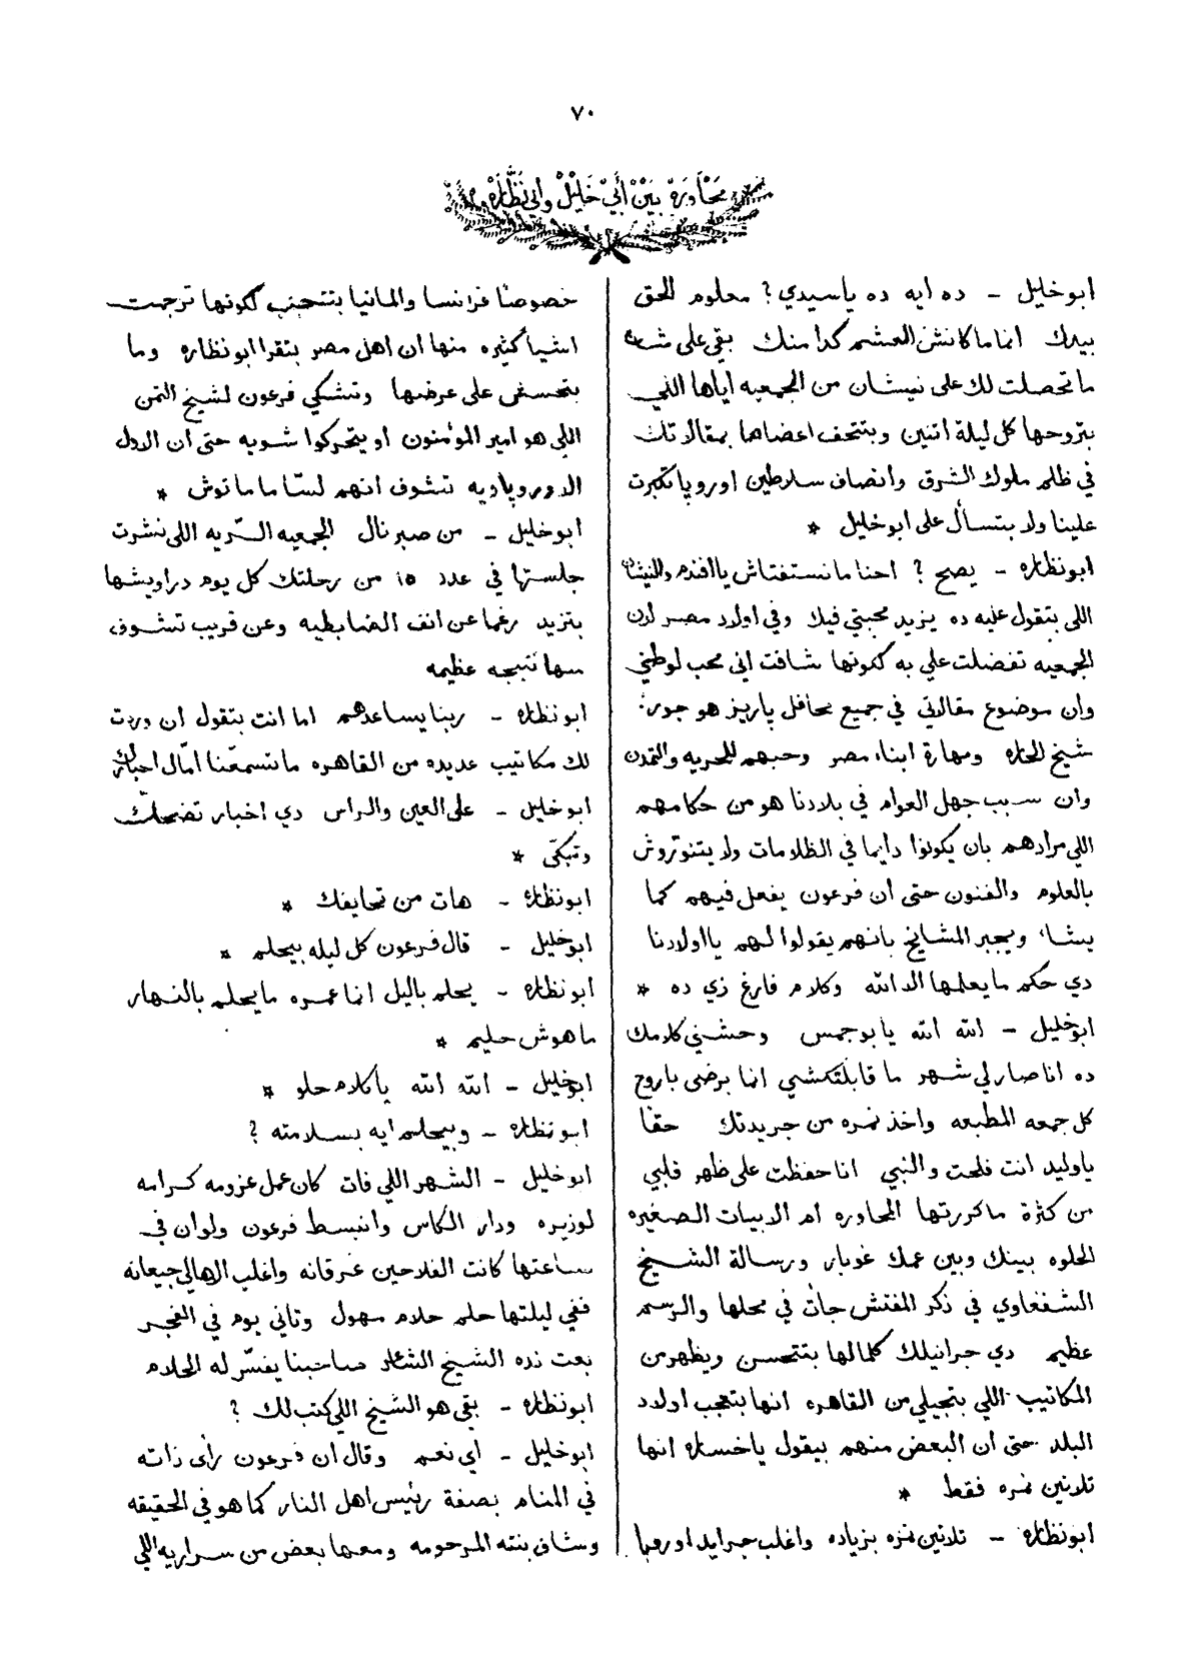 ٧٠
محاورة بين أبي خليل وابي نظاره
ابوخليل - ده ايه ده ياسيدي؟ معلوم الحق
بيدك انما ماكانش العشم كدا منك بقي على شان
ماتحصلت لك على نيشان من الجمعيه اياها اللي
بتروحها كل ليلة اتنين وبتتحف اعضاها بمقالاتك
في ظلم ملوك الشرق وانصاف سلاطين اوروپا تكبرت
علينا ولا بتسأل على ابوخليل *
ابونظاره - يصح؟ احنا مانستغناش ياافندم والنيشان
اللي بتقول عليه ده يزيد محبتي فيك وفي اولاد مصر لان
الجمعيه تفضلت علي به لكونها شافت اني محب لوطني
وان موضوع مقالاتي في جميع محافل پاريز هو جور
شيخ الحاره ومهارة ابناء مصر وحبهم للحريه والتمدن
وان سبب جهل العوام في بلادنا هو من حكامهم
اللي مرادهم بان يكونوا دايما في الظلامات ولا يتنوروش
بالعلوم والفنون حتى ان فرعون يفعل فيهم كما
يشاء ويجبر المشايخ بانهم يقولوا لهم يااولادنا
دي حكم مايعلمها الا الله وكلام فارغ زي ده *
ابوخليل - الله الله يابوجمس وحشني كلامك
ده انا صار لي شهر ما قابلتكشي انما برضى باروح
كل جمعه المطبعه واخذ نمره من جريدتك حقا
ياوليد انت فلحت والنبي انا حفظت على ظهر قلبي
من كثرة ماكررتها المحاوره ام الابيات الصغيره
الحلوه بينك وبين عمك غوبار ورسالة الشيخ
الشفعاوي في ذكر المفتش جات في محلها والرسم
عظيم دي جرانيلك كلمالها بتتحسن ويظهر من
المكاتيب اللي بتجيلي من القاهره انها بتعجب اولاد
البلد حتى ان البعض منهم بيقول ياخساره انها
تلاتين نمره فقط *
ابونظاره - تلاتين نمره بزياده واغلب جرايد اوروپا
خصوصًا فرانسا والمانيا بتتعجب لكونها ترجمت
اشيأ كثيره منها ان اهل مصر بتقرا ابونظاره وما
بتحسش على عرضها وتشكي فرعون لشيخ التمن
اللي هو امير المؤمنون او يتحركوا شويه حتى ان الدول
الاوروپاويه تشوف انهم لسّا ما ماتوش *
ابوخليل - من صبر نال الجمعيه السّريه اللي نشرت
جلستها في عدد ١٥ من رحلتك كل يوم دراويشها
بتزيد رغما عن انف الضابطيه وعن قريب تشوف
سها نتيجه عظيمه
ابونظاره - ربنا يساعدهم اما انت بتقول ان وردت
لك مكاتيب عديده من القاهره ماتسمعّنا امّال اخبارك
ابوخليل - على العين والراس دي اخبار تضحكّ
وتبكّى *
ابونظاره - هات من تحايفك *
ابوخليل - قال فرعون كل ليله بيحلم *
ابونظاره - يحلم باليل انما عمره مايحلم بالنهار
ماهوش حليم *
ابوخليل - الله الله ياكلام حلو *
ابونظاره - وبيحلم ايه بسلامته؟
ابوخليل - الشهر اللي فات كان عمل عزومه كرامه
لوزيره ودار الكاس وانبسط فرعون ولو ان في
ساعتها كانت الفلاحين غرقانه واغلب الاهالي جيعانه
ففي ليلتها حلم حلام مهول وتاني يوم في الفجر
بعت نده الشيخ الشاعر صاحبنا يفسّر له الحلام
ابونظاره - بقي هو الشيخ اللي كتب لك؟
ابوخليل - اي نعم وقال ان فرعون رأى ذاته
في المنام بصفة رئيس اهل النار كما هو في الحقيقه
وشاف بنته المرحومه ومعها بعض من سراريه اللي